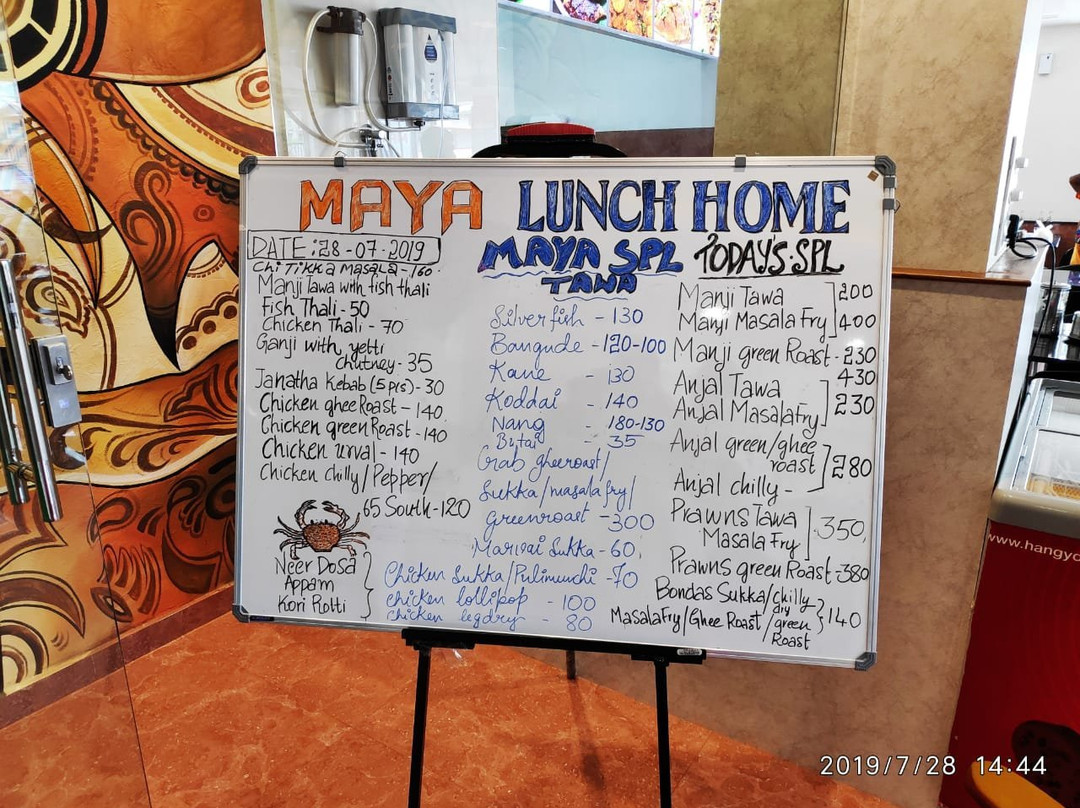 MAYA LUNCH HOME
DATE: 28-07-2019
Chi Tikka masala - 160
Manji Tawa with fish thali
Fish Thali - 50
Chicken Thali - 70
Ganji with yetti
Chutney - 35
Janatha Kebab (5 pis) - 30
Chicken ghee Roast - 140
Chicken green Roast - 140
Chicken urval - 140
Chicken chilly/Pepper/
65 South - 120
Neer Dosa
Appam
Kori Rotti
MAYA SPL
TAWA
Silver fish - 130
Bangude - 120-100
Kane - 130
Koddai - 140
Nang - 180-130
Butai - 35
Crab gheeroast/
Sukka/masala fry/
Greenroast - 300
Marvai Sukka - 60
Chicken Sukka/Pulimunchi - 70
chicken lollipop - 100
chicken leg dry - 80
TODAY'S.SPL
Manji Tawa 200
Manji Masala Fry 400
Manji green Roast - 230
Anjal Tawa 430
Anjal Masala Fry 230
Anjal green/ghee
roast 280
Anjal chilly -
Prawns Tawa
Masala Fry 350
Prawns green Roast - 380
Bondas Sukka/chilly
dry
MasalaFry/Ghee Roast/green 140
Roast
www.hangyo
2019/7/28 14:44